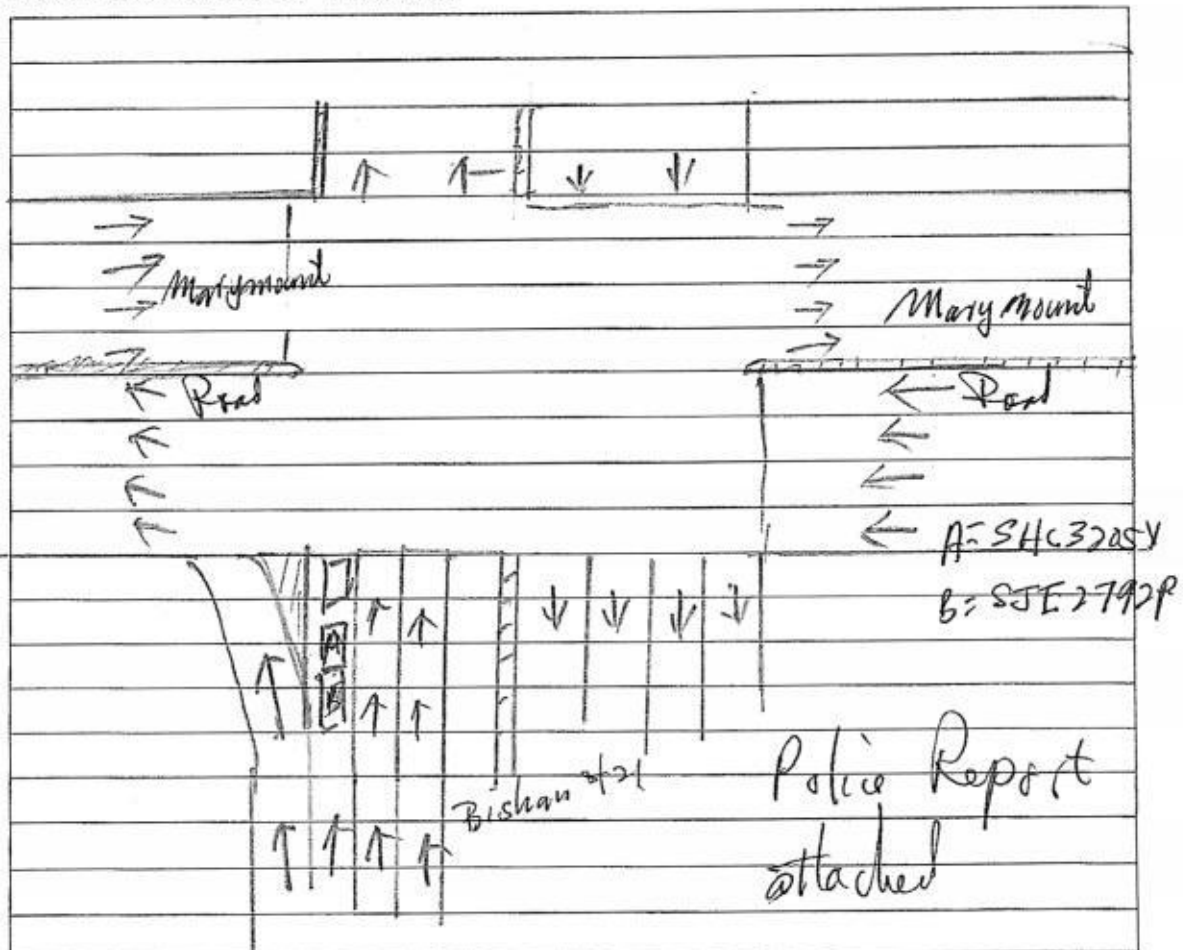 Marymount
Mary mount
Road
Road
A= SHC3205Y
B= SJE2792P
A
B
Bishan st 21
Police Report
attached